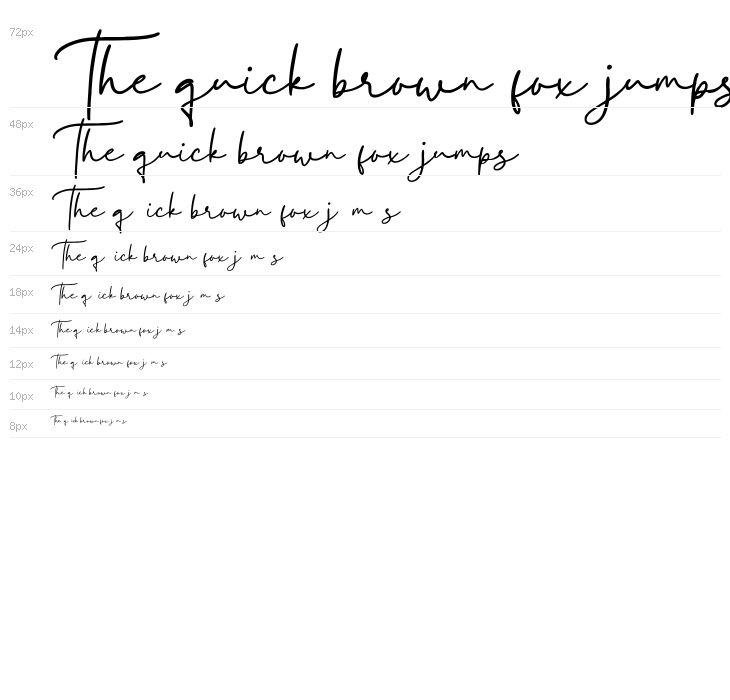 72px The quick brown fox jumps
48px The quick brown fox jumps
36px The q ick brown fox j m s
24px The q ick brown fox j m s
18px The q ick brown fox j m s
14px The q ick brown fox j m s
12px The q ick brown fox j m s
10px The q ick brown fox j m s
8px The q ick brown fox j m s